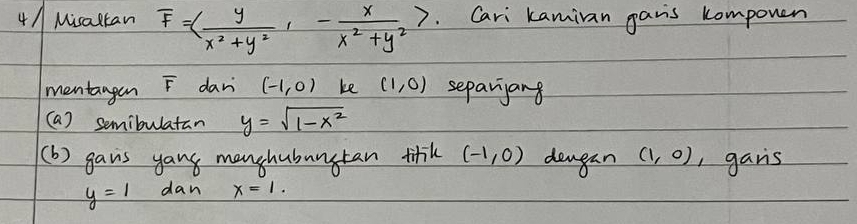 4/ Misalkan F̅ = < y/(x² + y²), - x/(x² + y²) >. Cari kamiran garis komponen
mentangen F̅ dari (-1,0) ke (1,0) sepanjang
(a) semibulatan y = √(1-x²)
(b) garis yang menghubungkan titik (-1,0) dengan (1,0), garis
y = 1 dan x = 1.